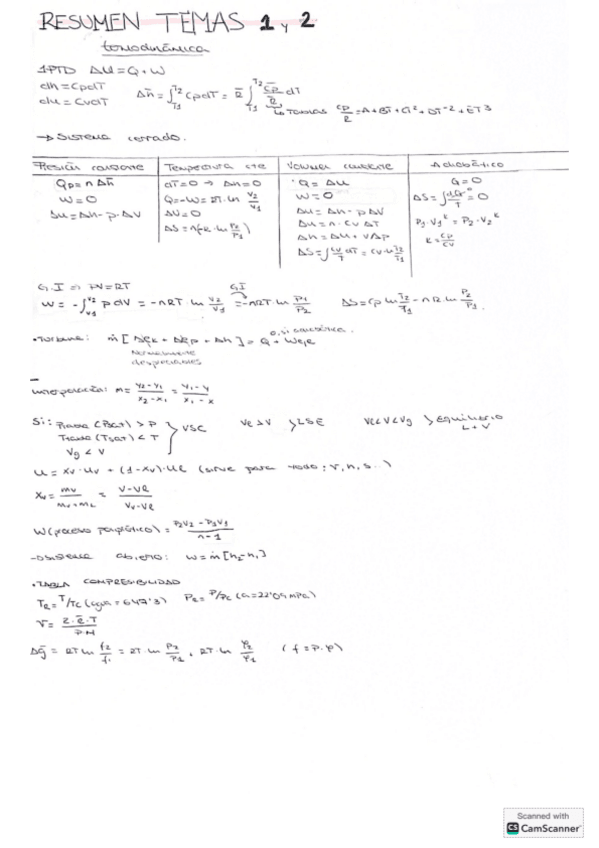 RESUMEN TEMAS 1 y 2
termodinámica
1PTD ΔU = Q + W
dh = CpdT
du = CvdT
Δh̄ = ∫T1 T2 Cp dT = R̄ ∫T1 T2 C̄p/R̄ dT
↳ TABLAS Cp/R = A + BT + CT² + DT⁻² + ET³
→ Sistema cerrado.
Presión constante | Temperatura cte | Volumen constante | Adiabático
Qp = n Δh̄ | dT = 0 → Δh = 0 | Q = Δu | Q = 0
W = 0 | Q = -W = RT · ln V2/V1 | W = 0 | ΔS = ∫ dQr/T = 0
Δu = Δh - p·ΔV | ΔU = 0 | Δu = Δh - p ΔV | P1·V1ᴷ = P2·V2ᴷ
ΔS = n(R·ln P2/P1) | Δu = n·Cv ΔT | K = Cp/Cv
Δh = Δu + VΔp
ΔS = ∫ Cv/T dT = Cv·ln T2/T1
G.I ⇒ PV = RT
W = -∫V1 V2 p dV = -nRT·ln V2/V1 = -nRT·ln P1/P2
G.I
ΔS = Cp ln T2/T1 - nR·ln P2/P1
• Turbina: ṁ [ΔEk + ΔEp + Δh] = Q + Weje
0, si adiabática.
Normalmente
despreciables
Interpolación: m = (y2 - y1)/(x2 - x1) = (y1 - y)/(x1 - x)
Si: Ptabla (Psat) > P
Ttabla (Tsat) < T
Vg < V
} VSC
Ve > V } LSE
Ve < V < Vg } equilibrio
L + V
u = Xv·Uv + (1 - Xv)·Ue (sirve para todo: v, h, s...)
Xv = mv/(mv + mL) = (V - Ve)/(Vv - Ve)
W (proceso politrópico) = (P2V2 - P1V1)/(n - 1)
→ sistema abierto: W = ṁ [h2 - h1]
• TABLA COMPRESIBILIDAD
TR = T/Tc (agua = 647'3)
PR = P/Pc (a = 22'09 MPa)
V = Z·R̄·T/P·M
Δḡ = RT ln f2/f1 = RT·ln P2/P1 + RT·ln φ2/φ1 (f = p·φ)
Scanned with
CS CamScanner